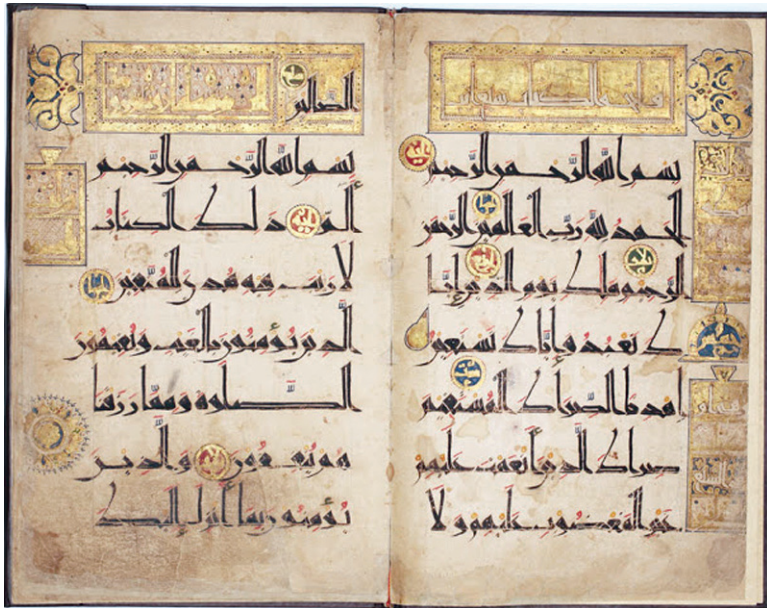 فاتحة الكتاب سبع
بسم الله الرحمن الرحيم
الحمد لله رب العالمين الرحمن
الرحيم ملك يوم الدين إيا
ك نعبد وإياك نستعين
اهدنا الصراط المستقيم
صراط الذين أنعمت عليهم
غير المغضوب عليهم ولا
الضالين
بسم الله الرحمن الرحيم
ألم ذلك الكتاب
لا ريب فيه هدى للمتقين
الذين يؤمنون بالغيب ويقيمون
الصلوة ومما رزقنا
هم ينفقون والذين
يؤمنون بما أنزل إليك